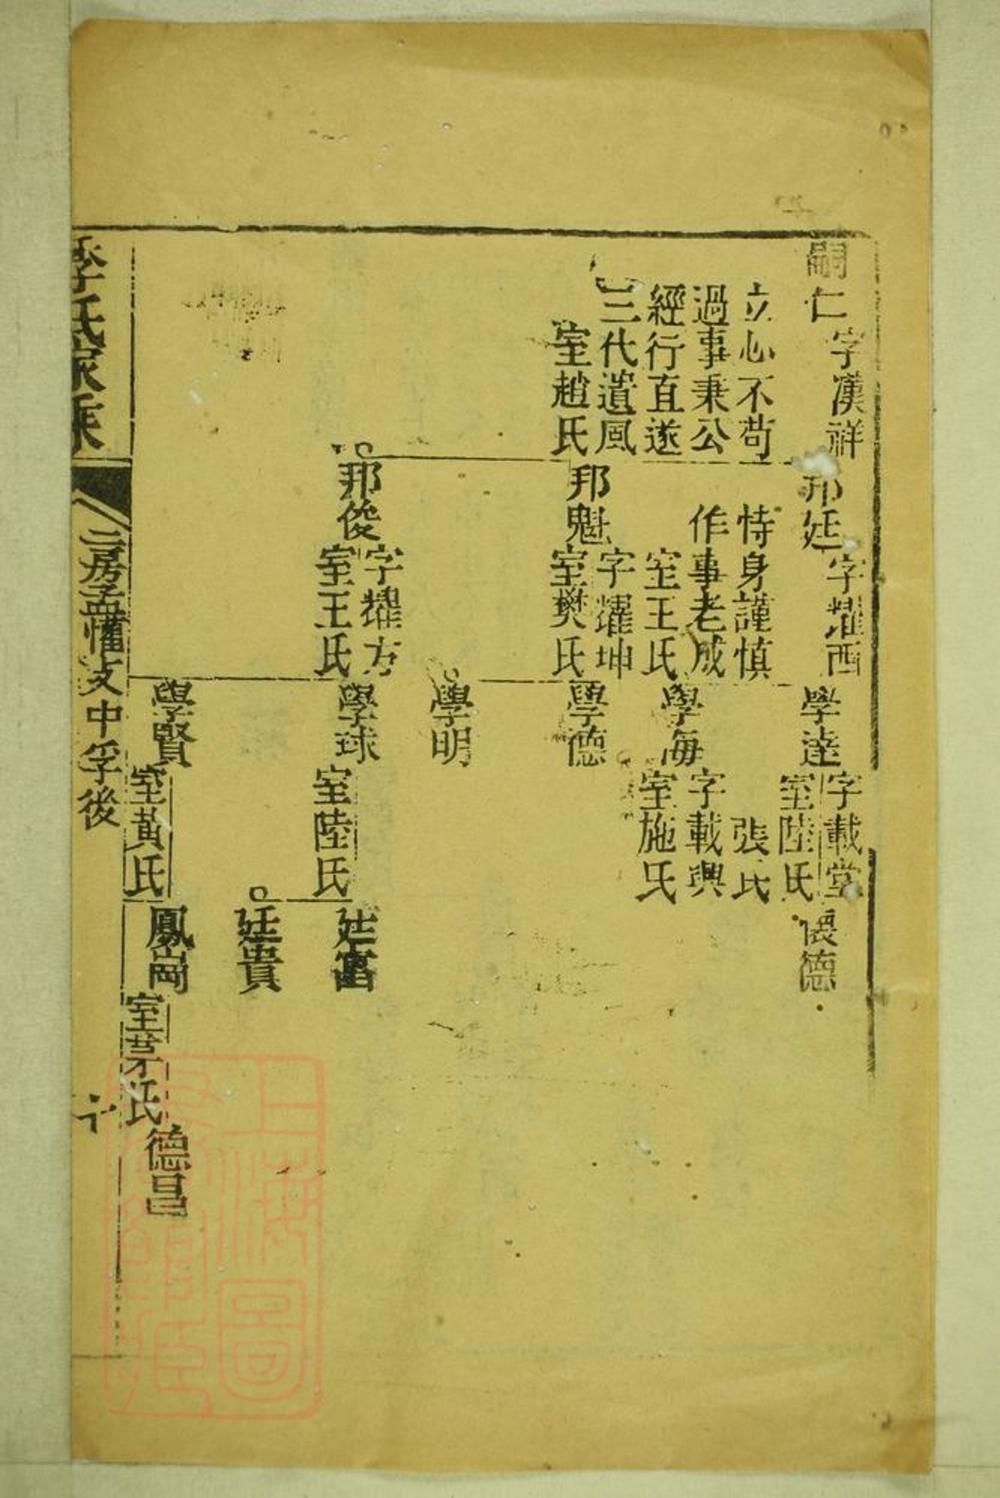 嗣仁
字漢祥
立心不苟
過事秉公
經行直遂
三代遺風
室趙氏
邦廷
字耀西
恃身謹慎
作事老成
室王氏
邦魁
字耀坤
室樊氏
邦俊
字耀方
室王氏
學達
字載堂
室陸氏
張氏
學海
字載興
室施氏
學德
學明
學球
室陸氏
學賢
室黃氏
懷德
廷富
廷貴
鳳崗
室茅氏
德昌
李氏家乘
二房孟懽文中孚後
十
上海圖